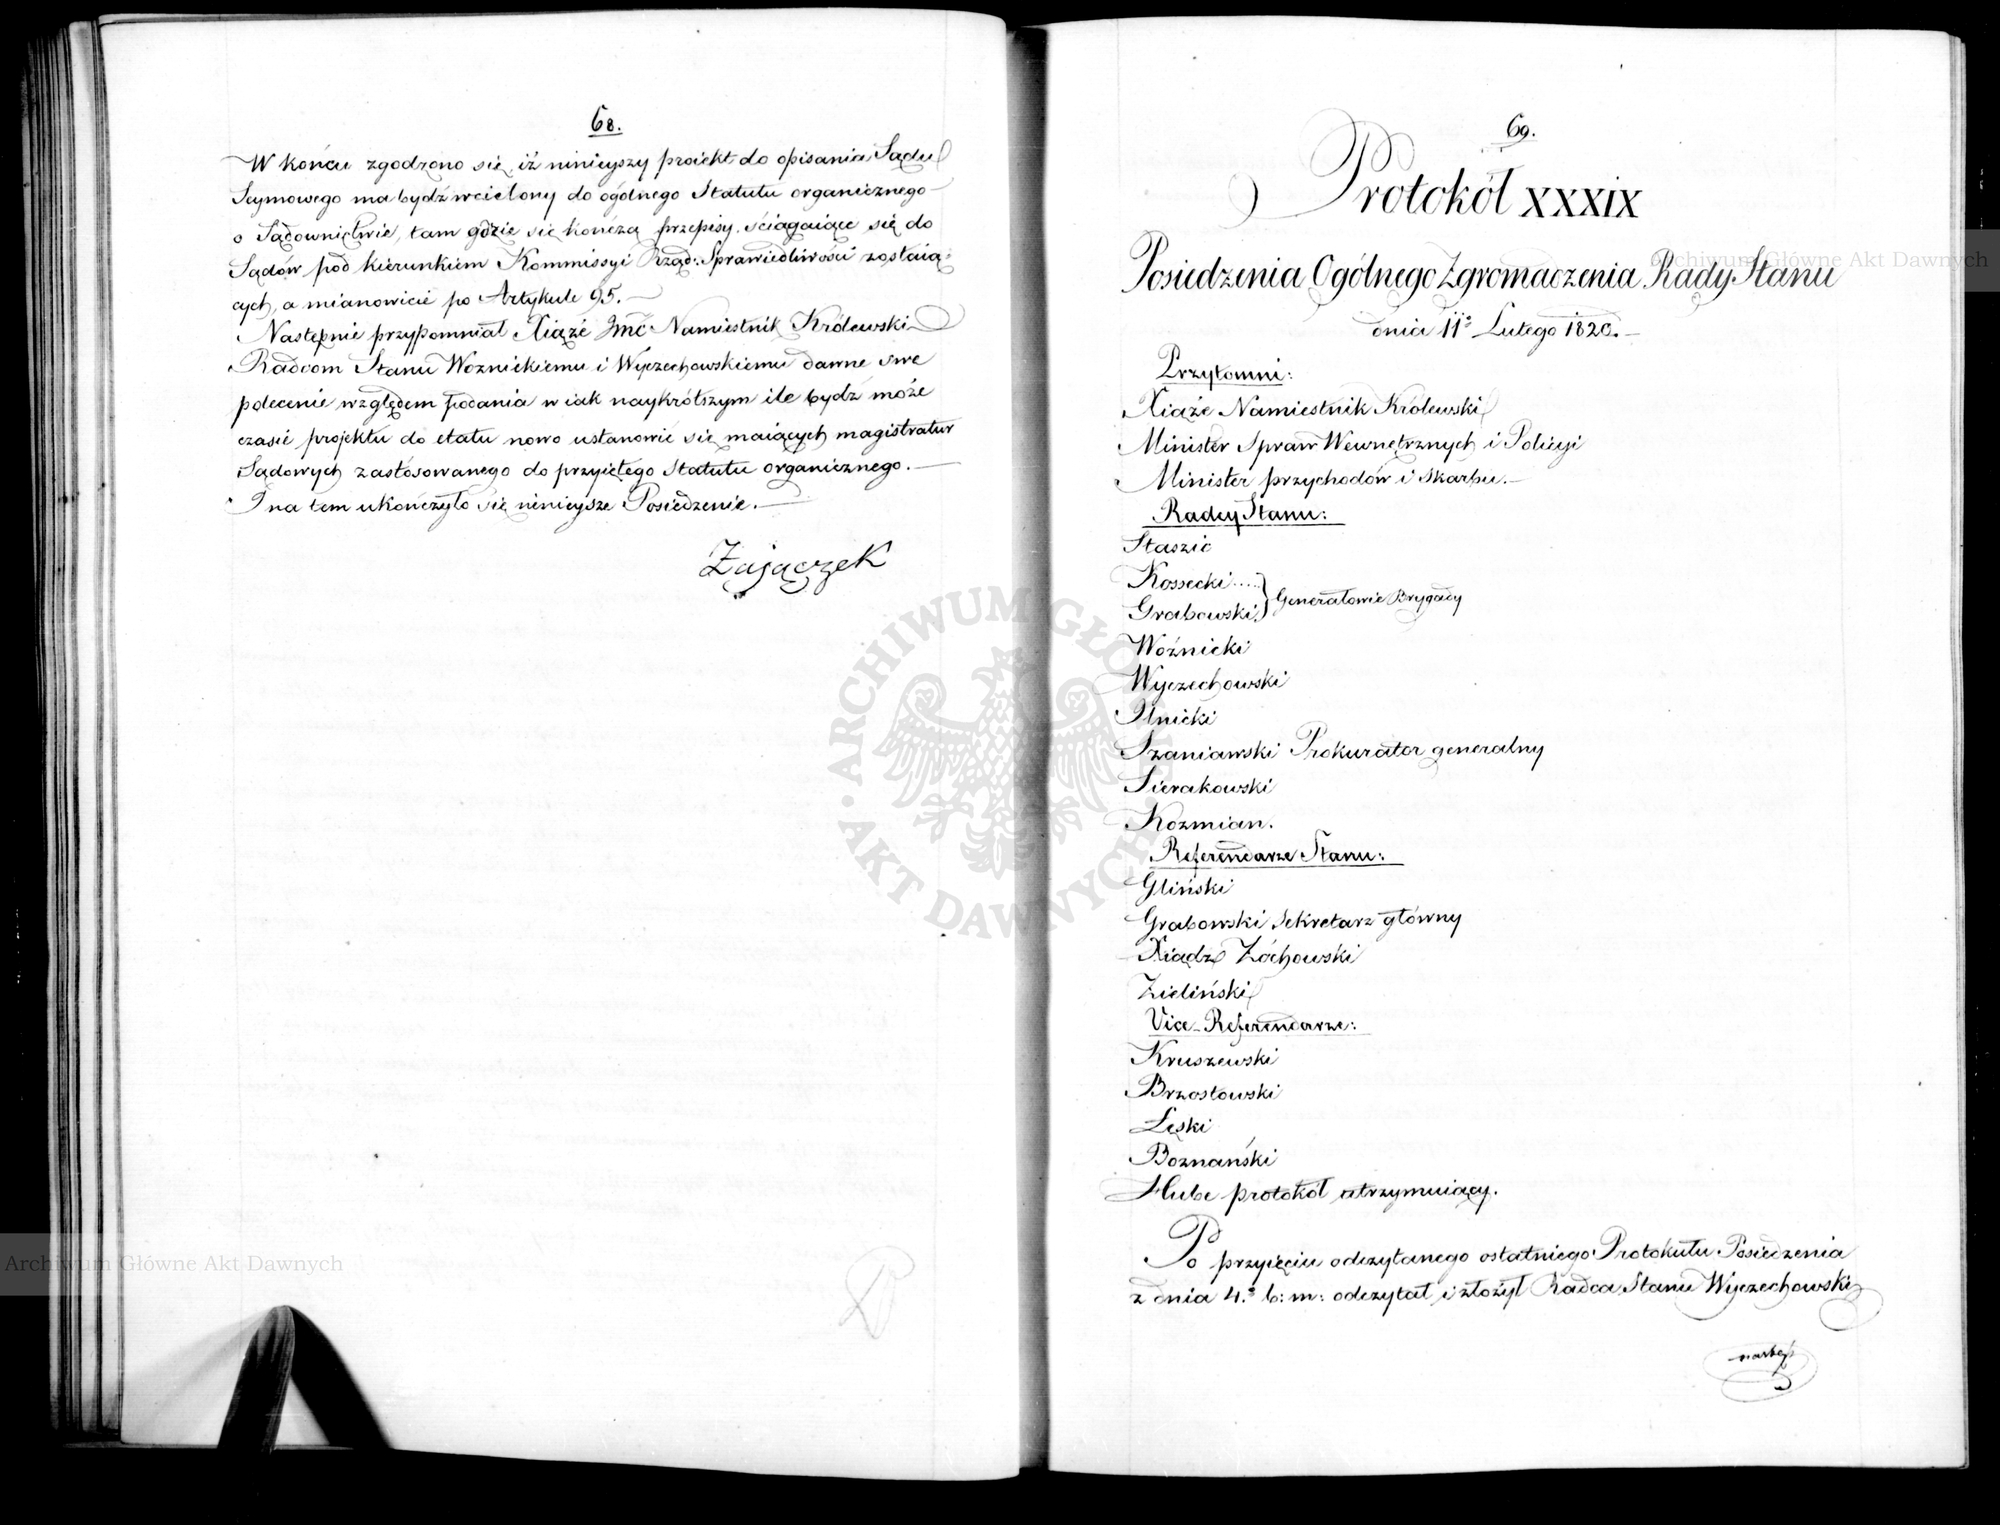 68.
W końcu zgodzono się, iż ninieyszy proiekt do opisania Sądu
Seymowego ma bydź wcielony do ogólnego Statutu organicznego
o Sądownictwie, tam gdzie się kończą przepisy ściągaiące się do
Sądów pod kierunkiem Kommissyi Rząd: Sprawiedliwości zostaią-
cych, a mianowicie po Artykule 95. —
Następnie przypomniał Xiąże Jmć Namiestnik Królewski
Radcom Stanu Woznickiemu i Wyczechowskiemu dawne swe
polecenie względem podania w iak naykrótszym ile bydź może
czasie projektu do etatu nowo ustanowić się maiących magistratur
Sądowych zastósowanego do przyiętego Statutu organicznego. —
I na tem ukończyło się ninieysze Posiedzenie. —
Zajączek
69.
Protokół XXXIX
Posiedzenia Ogólnego Zgromadzenia Rady Stanu
dnia 11º Lutego 1820. —
Przytomni:
Xiąże Namiestnik Królewski
Minister Spraw Wewnętrznych i Policyi
Minister przychodów i Skarbu. —
Radcy Stanu:
Staszic
Kossecki ....
Grabowski } Generałowie Brygady
Woźnicki
Wyczechowski
Ilnicki
Szaniawski Prokurator generalny
Sierakowski
Kozmian.
Referendarze Stanu:
Gliński
Grabowski Sekretarz główny
Xiądz Zochowski
Zieliński
Vice-Referendarze:
Kruszewski
Brzostowski
Łęski
Boznański
Hube protokół utrzymuiący.
Po przyięciu odczytanego ostatniego Protokułu Posiedzenia
z dnia 4.º b: m: odczytał i złożył Radca Stanu Wyczechowski
Archiwum Główne Akt Dawnych
Archiwum Główne Akt Dawnych
ARCHIWUM GŁÓWNE AKT DAWNYCH